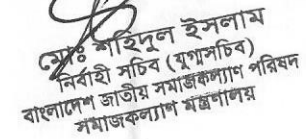 মোঃ শহিদুল ইসলাম
নির্বাহী সচিব (যুগ্মসচিব)
বাংলাদেশ জাতীয় সমাজকল্যাণ পরিষদ
সমাজকল্যাণ মন্ত্রণালয়